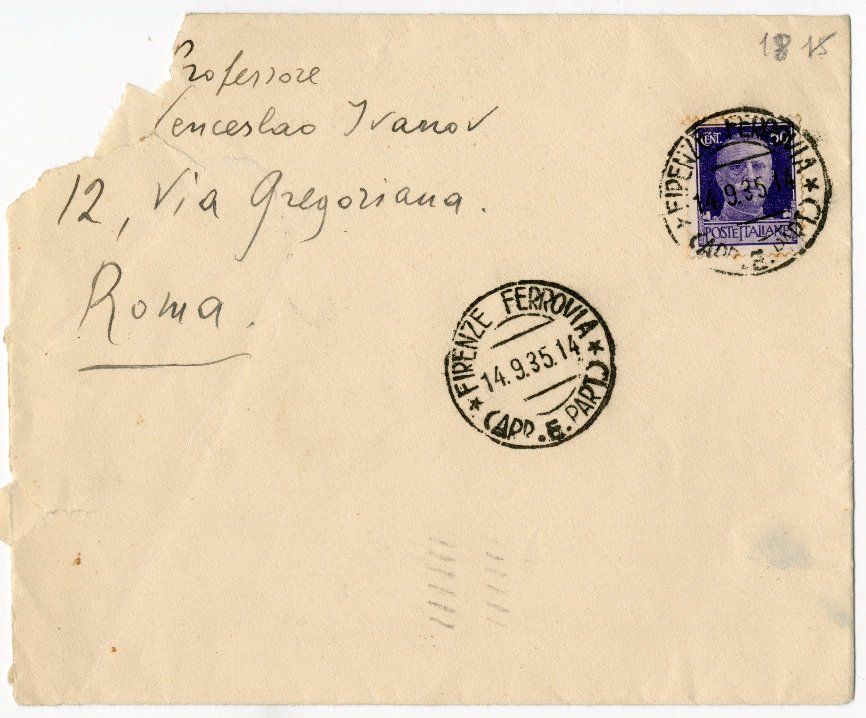 Professore
Venceslao Ivanov
12, Via Gregoriana.
Roma.
18
CENT. 50
POSTE ITALIANE
FIRENZE FERROVIA
14.9.35.14
(ARR. E. PART.)
FIRENZE FERROVIA
14.9.35.14
(ARR. E. PART.)